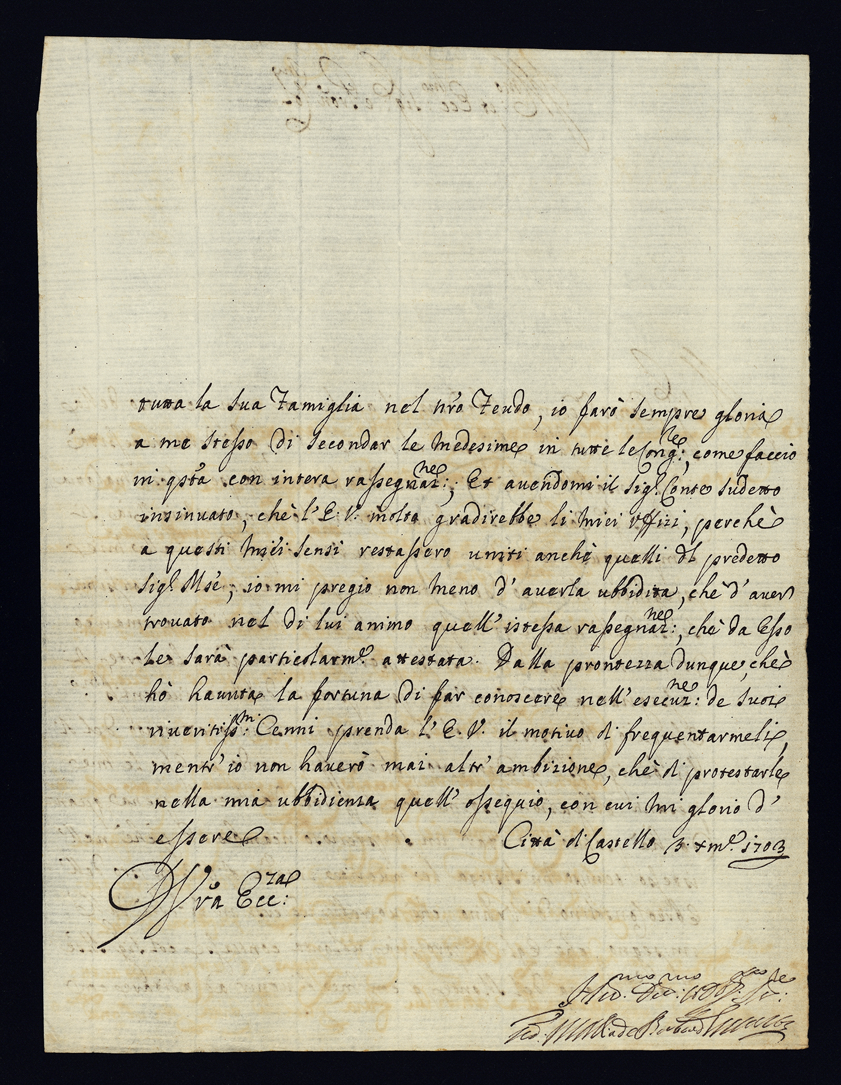 tutta la sua Famiglia nel nr̃o Feudo, io farò sempre gloria
a me stesso di secondar le medesime in tutte le Cong:re, come faccio
in qstã con intera rassegnaz:ne; Et avendomi il Sigr. Conte sudetto
insinuato, chè l'E.V. molto gradirebbe li miei uffizi, perchè
a questi miei sensi restassero uniti anchè quelli dl predetto
Sigr. Mse; io mi pregio non meno d'averla ubbidita, chè d'aver
trovato nel di lui animo quell'istessa rassegnaz:ne, chè da Esso
Le sarà particolarmẽ. attestata. Dalla prontezza dunque, chè
hò havuta la fortuna di far conoscere nell'esecuz:ne de suoi
riveritiss:mi Cenni prenda l'E.V. il motivo di frequentarmeli,
mentr'io non haverò mai altr'ambizione, chè di protestarle
nella mia ubbidienza quell'ossequio, con cui mi glorio d'
essere Città di Castello 3 Xmẽ. 1703
D V̅r̅a Ecc:za